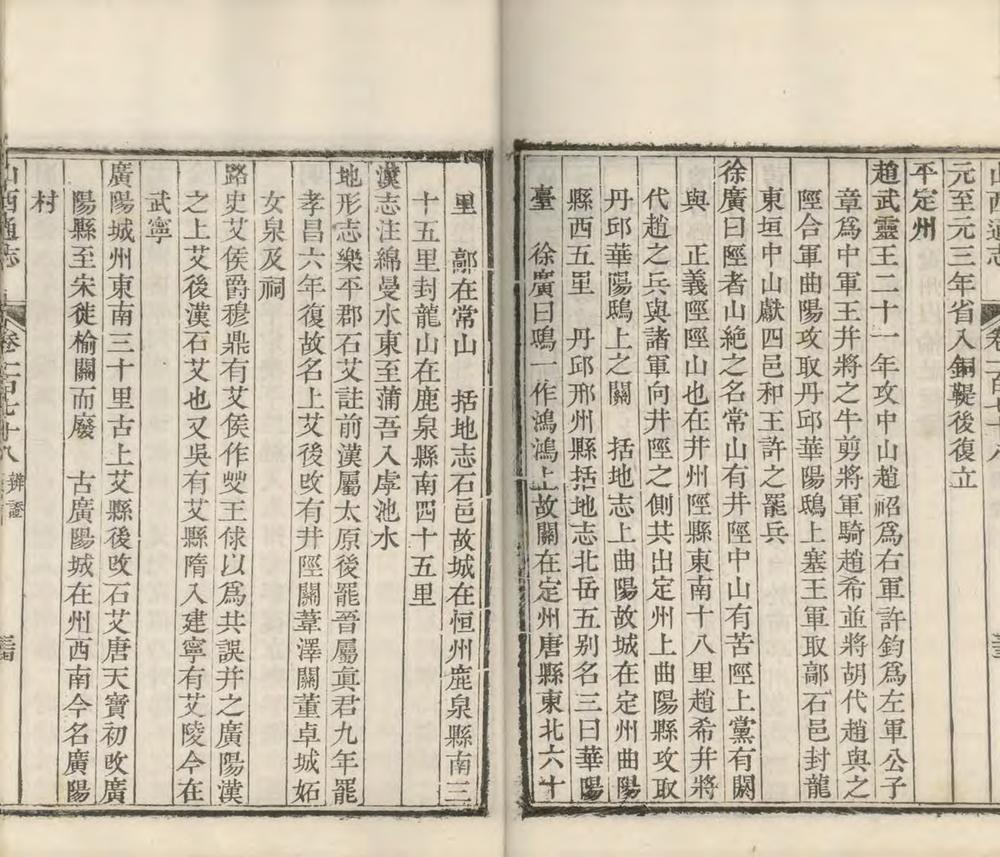 山西通志 卷一百七十八 三十三
元至元三年省入銅鞮後復立
平定州
趙武靈王二十一年攻中山趙袑爲右軍許鈞爲左軍公子
章爲中軍王幷將之牛剪將軍騎趙希並將胡代趙與之
陘合軍曲陽攻取丹邱華陽鴟上塞王軍取鄗石邑封龍
東垣中山獻四邑和王許之罷兵
徐廣曰陘者山絶之名常山有井陘中山有苦陘上黨有閼
與 正義陘陘山也在井州陘縣東南十八里趙希幷將
代趙之兵與諸軍向井陘之側共出定州上曲陽縣攻取
丹邱華陽鴟上之關 括地志上曲陽故城在定州曲陽
縣西五里 丹邱邢州縣括地志北岳五别名三曰華陽
臺 徐廣曰鴟一作鴻鴻上故關在定州唐縣東北六十
里 鄗在常山 括地志石邑故城在恒州鹿泉縣南三
十五里封龍山在鹿泉縣南四十五里
漢志注綿曼水東至蒲吾入虖池水
地形志樂平郡石艾註前漢屬太原後罷晉屬眞君九年罷
孝昌六年復故名上艾後改有井陘關葦澤關董卓城妬
女泉及祠
路史艾侯爵穆鼎有艾侯作㜽王俅以爲共誤并之廣陽漢
之上艾後漢石艾也又吳有艾縣隋入建寧有艾陵今在
武寧
廣陽城州東南三十里古上艾縣後改石艾唐天寶初改廣
陽縣至宋徙榆關而廢 古廣陽城在州西南今名廣陽
村
山西通志 卷一百七十八 辨證 三十四